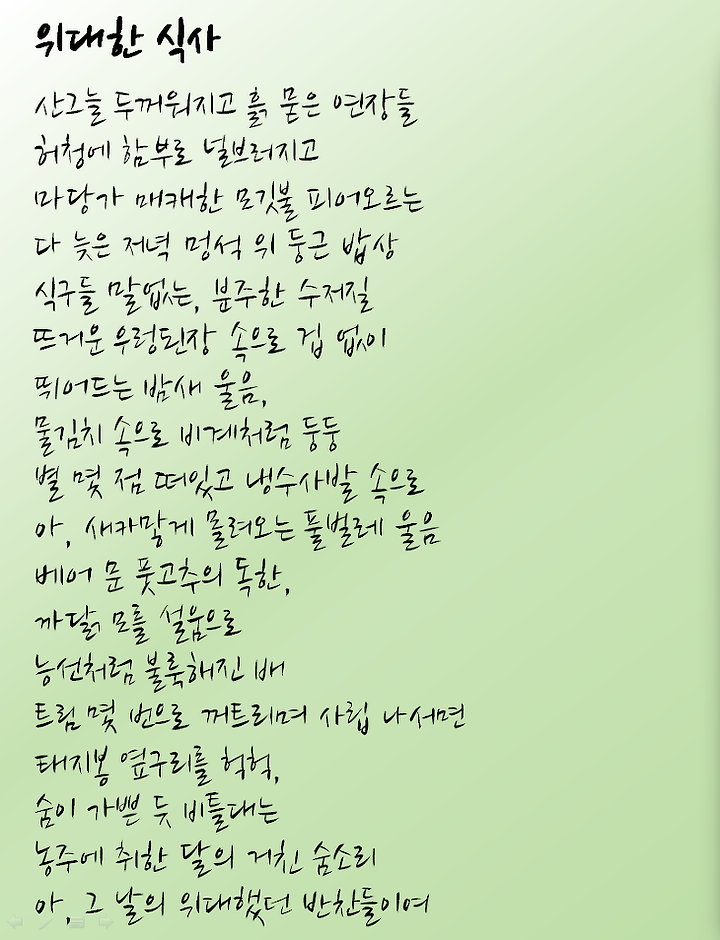 위대한 식사
산그늘 두꺼워지고 흙 묻은 연장들
허청에 함부로 널브러지고
마당가 매캐한 모깃불 피어오르는
다 늦은 저녁 멍석 위 둥근 밥상
식구들 말없는, 분주한 수저질
뜨거운 우렁된장 속으로 겁 없이
뛰어드는 밤새 울음,
물김치 속으로 비계처럼 둥둥
별 몇 점 떠있고 냉수사발 속으로
아, 새카맣게 몰려오는 풀벌레 울음
베어 문 풋고추의 독한,
까닭 모를 설움으로
능선처럼 불룩해진 배
트림 몇 번으로 꺼트리며 사립 나서면
태지봉 옆구리를 헉헉,
숨이 가쁜 듯 비틀대는
농주에 취한 달의 거친 숨소리
아, 그 날의 위대했던 반찬들이여